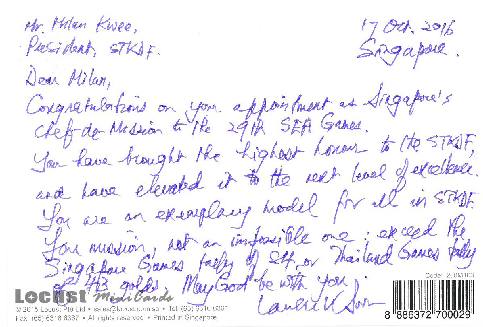 Mr. Milan Kwee,
17 Oct. 2016
President, STKDF.
Singapore.
Dear Milan,
Congratulations on your appointment as Singapore's
Chef-de-Mission to the 29th SEA Games.
You have brought the highest honour to the STKDF,
and have elevated it to the next level of excellence.
You are an exemplary model for all in STKDF.
Your mission, not an impossible one: exceed the
Singapore Games tally of 84, or Thailand Games tally
of 43 golds. May God be with you.
Locust MiniCards
© 2015 Locust Pte Ltd • sales@locust.com.sg • Tel: (65)
Fax: (65) 6318 8387 • All Rights Reserved • Printed in Singapore
8 885372 700029